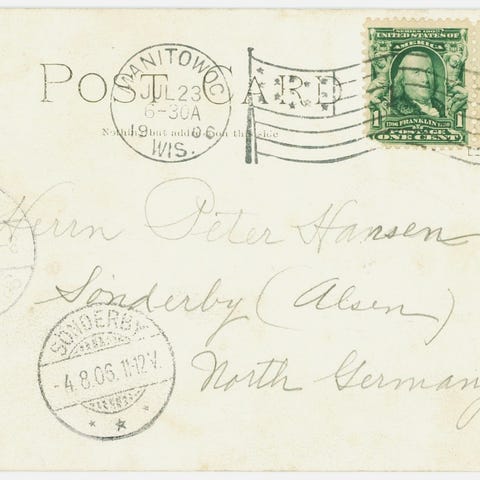 POST CARD
Nothing but address on this side
MANITOWOC
JUL 23
6-30A
1906
WIS.
SERIES 1902
UNITED STATES OF
AMERICA
1 FRANKLIN 1
POSTAGE
ONE CENT
Herrn Peter Hansen
Sönderby (Alsen)
North Germany
SONDERBY
-4.8.06.11-12V.